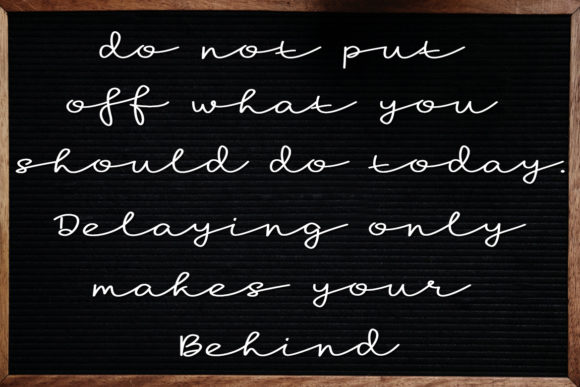 do not put
off what you
should do today.
Delaying only
makes your
Behind